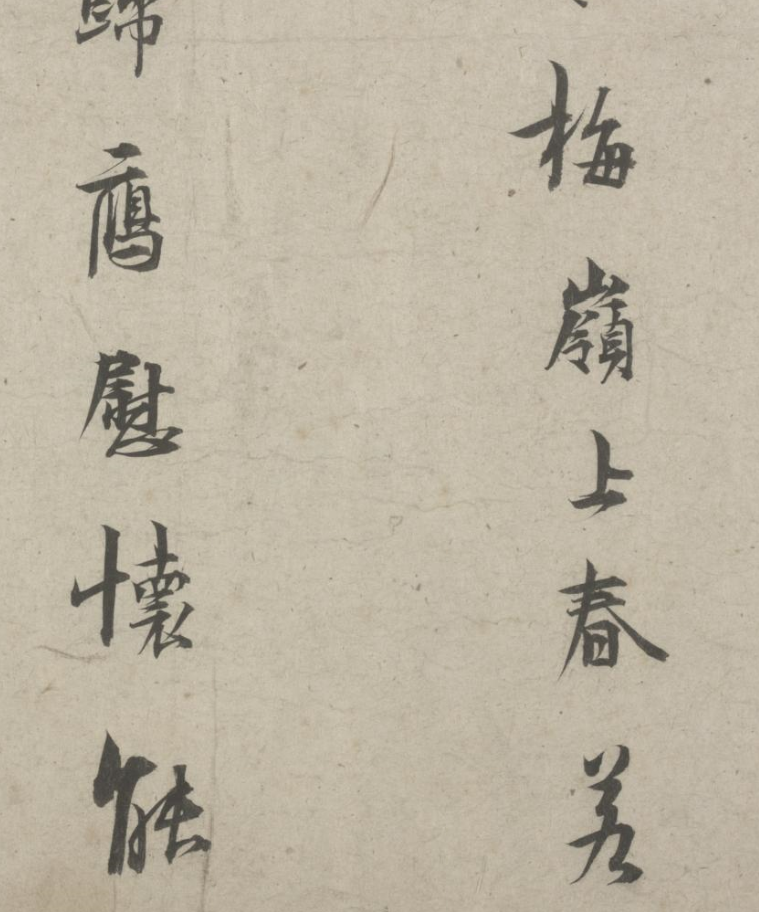 梅嶺上春
歸鴈慰懷能